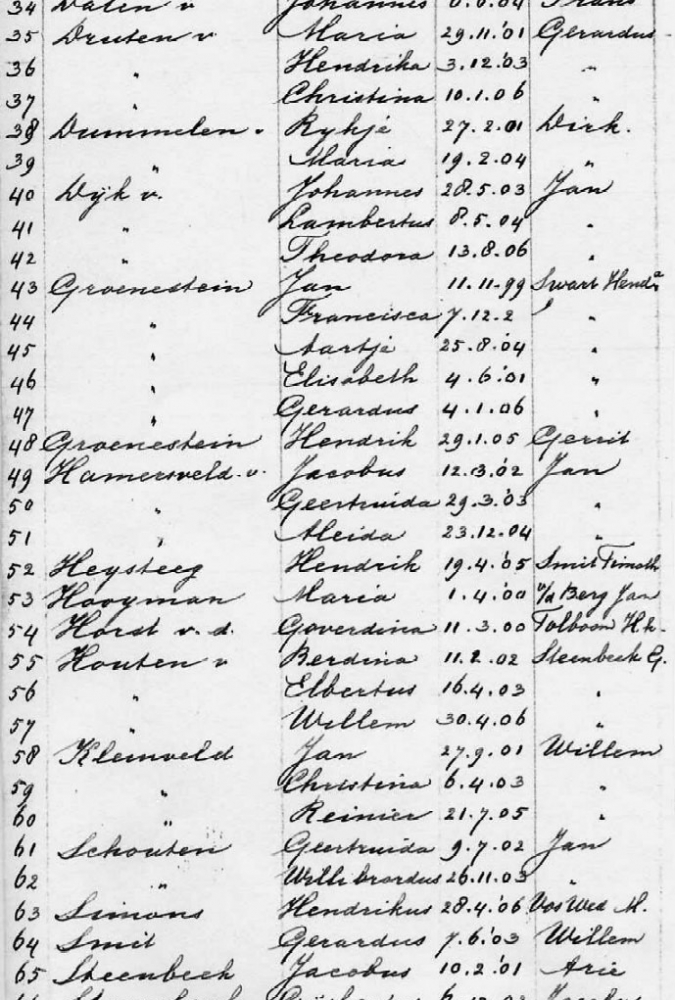 34 Dalen v Johannes 6.6.04 Frans
35 Druten v Maria 29.11.'01 Gerardus
36 " Hendrika 3.12.'03 "
37 " Christina 10.1.06 "
38 Dummelen . Rykje 27.2.01 Dirk.
39 " Maria 19.2.04 "
40 Dÿk v. Johannes 28.5.03 Jan
41 " Lambertus 8.5.04 "
42 " Theodora 13.8.06 "
43 Groenestein Jan 11.11.99 Swart Hend.
44 " Francisca 7.12.2 "
45 " Aartje 25.8.'04 "
46 " Elisabeth 4.6.'01 "
47 " Gerardus 4.1.06 "
48 Groenestein Hendrik 29.1.05 Gerrit
49 Hamersveld v. Jacobus 12.3.'02 Jan
50 " Geertruida 29.3.'03 "
51 " Aleida 23.12.04 "
52 Heysteeg Hendrik 19.4.'05 Smit Timoth
53 Hooyman Maria 1.4.'00 v/d Berg Jan
54 Horst v. d. Goverdina 11.3.00 Tolboom H.h.
55 Houten v Berdina 11.2.02 Steenbeek G.
56 " Elbertus 16.4.03 "
57 " Willem 30.4.06 "
58 Kleinveld Jan 27.9.01 Willem
59 " Christina 6.4.03 "
60 " Reinier 21.7.05 "
61 Schouten Geertruida 9.7.02 Jan
62 " Willibrordus 26.11.03 "
63 Simons Hendrikus 28.4.'06 Vos Wed M.
64 Smit Gerardus 7.6.'03 Willem
65 Steenbeek Jacobus 10.2.'01 Arie